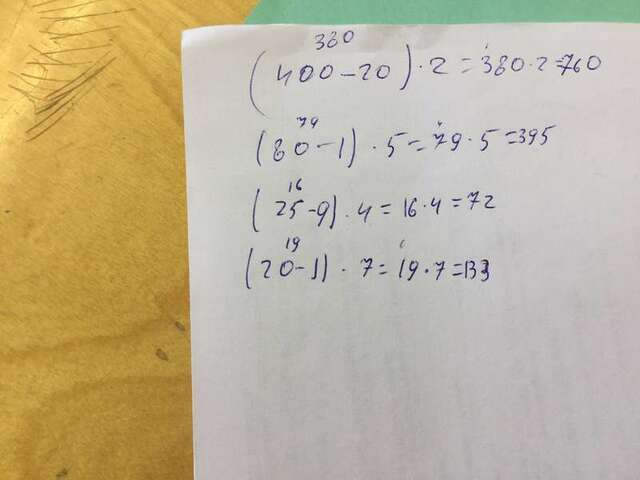 380
(400-20)·2=380·2=760
79
(80-1)·5=79·5=395
16
(25-9)·4=16·4=72
19
(20-1)·7=19·7=133